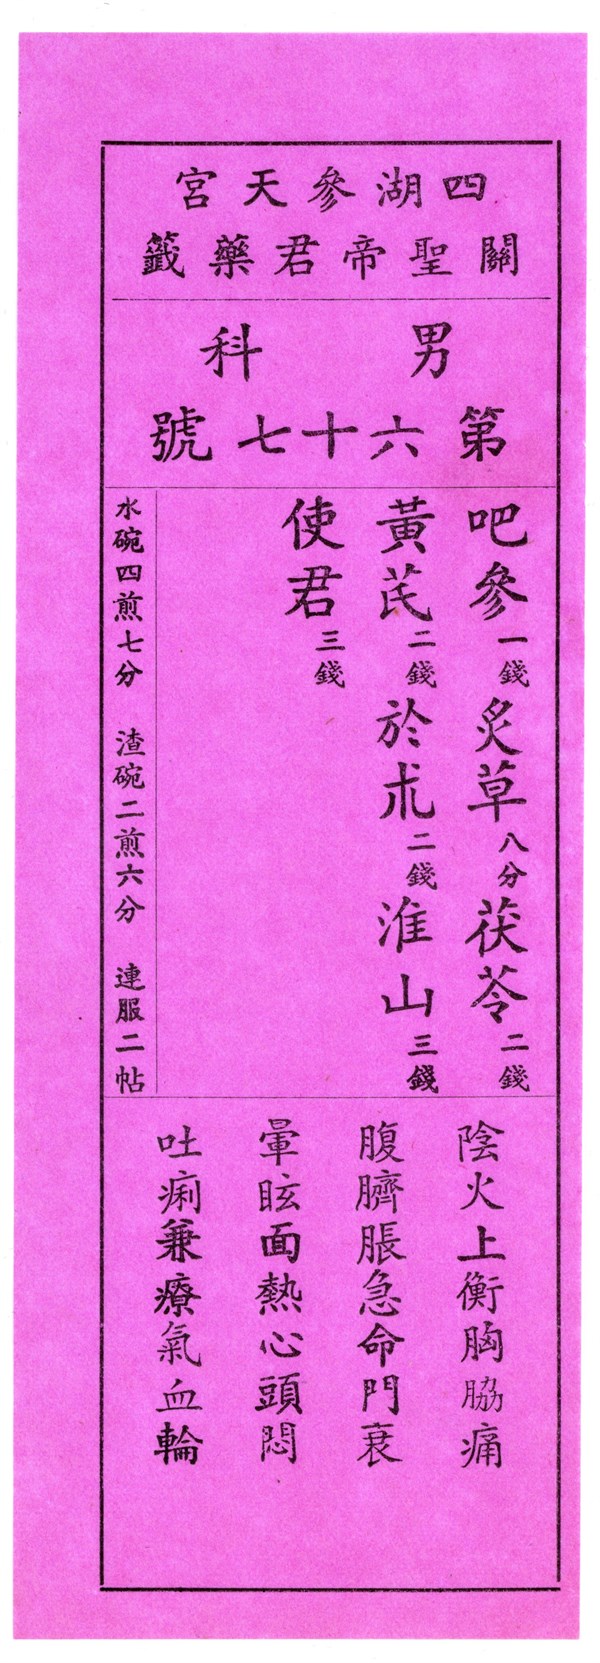 四湖參天宮
關聖帝君藥籤
男科
第六十七號
吧參一錢炙草八分茯苓二錢
黃芪二錢於朮二錢淮山三錢
使君三錢
水碗四煎七分 渣碗二煎六分 連服二帖
陰火上衡胸脇痛
腹臍脹急命門衰
暈眩面熱心頭悶
吐痢兼療氣血輪